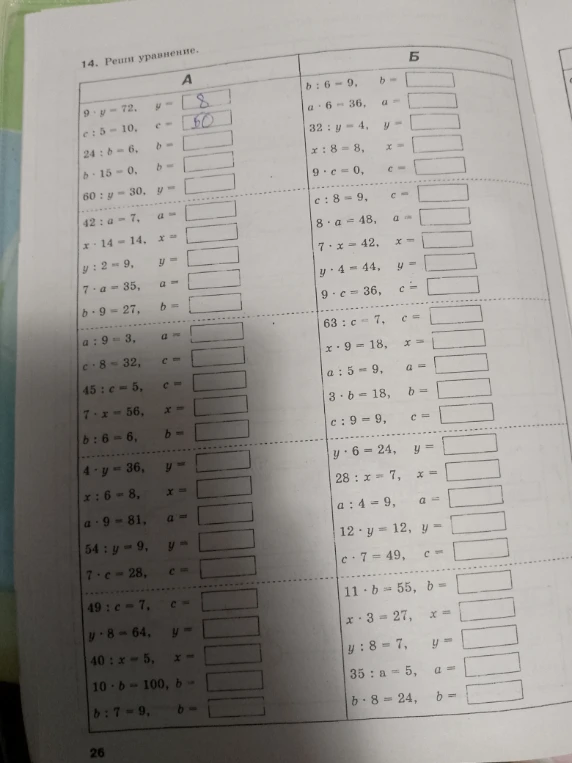 14. Реши уравнение.
А
9 · y = 72, y = 8
c : 5 = 10, c = 50
24 : b = 6, b =
b · 15 = 0, b =
60 : y = 30, y =
42 : a = 7, a =
x · 14 = 14, x =
y : 2 = 9, y =
7 · a = 35, a =
b · 9 = 27, b =
a : 9 = 3, a =
c · 8 = 32, c =
45 : c = 5, c =
7 · x = 56, x =
b : 6 = 6, b =
4 · y = 36, y =
x : 6 = 8, x =
a · 9 = 81, a =
54 : y = 9, y =
7 · c = 28, c =
49 : c = 7, c =
y · 8 = 64, y =
40 : x = 5, x =
10 · b = 100, b =
b : 7 = 9, b =
Б
b : 6 = 9, b =
a · 6 = 36, a =
32 : y = 4, y =
x : 8 = 8, x =
9 · c = 0, c =
c : 8 = 9, c =
8 · a = 48, a =
7 · x = 42, x =
y · 4 = 44, y =
9 · c = 36, c =
63 : c = 7, c =
x · 9 = 18, x =
a : 5 = 9, a =
3 · b = 18, b =
c : 9 = 9, c =
y · 6 = 24, y =
28 : x = 7, x =
a : 4 = 9, a =
12 · y = 12, y =
c · 7 = 49, c =
11 · b = 55, b =
x · 3 = 27, x =
y : 8 = 7, y =
35 : a = 5, a =
b · 8 = 24, b =
26